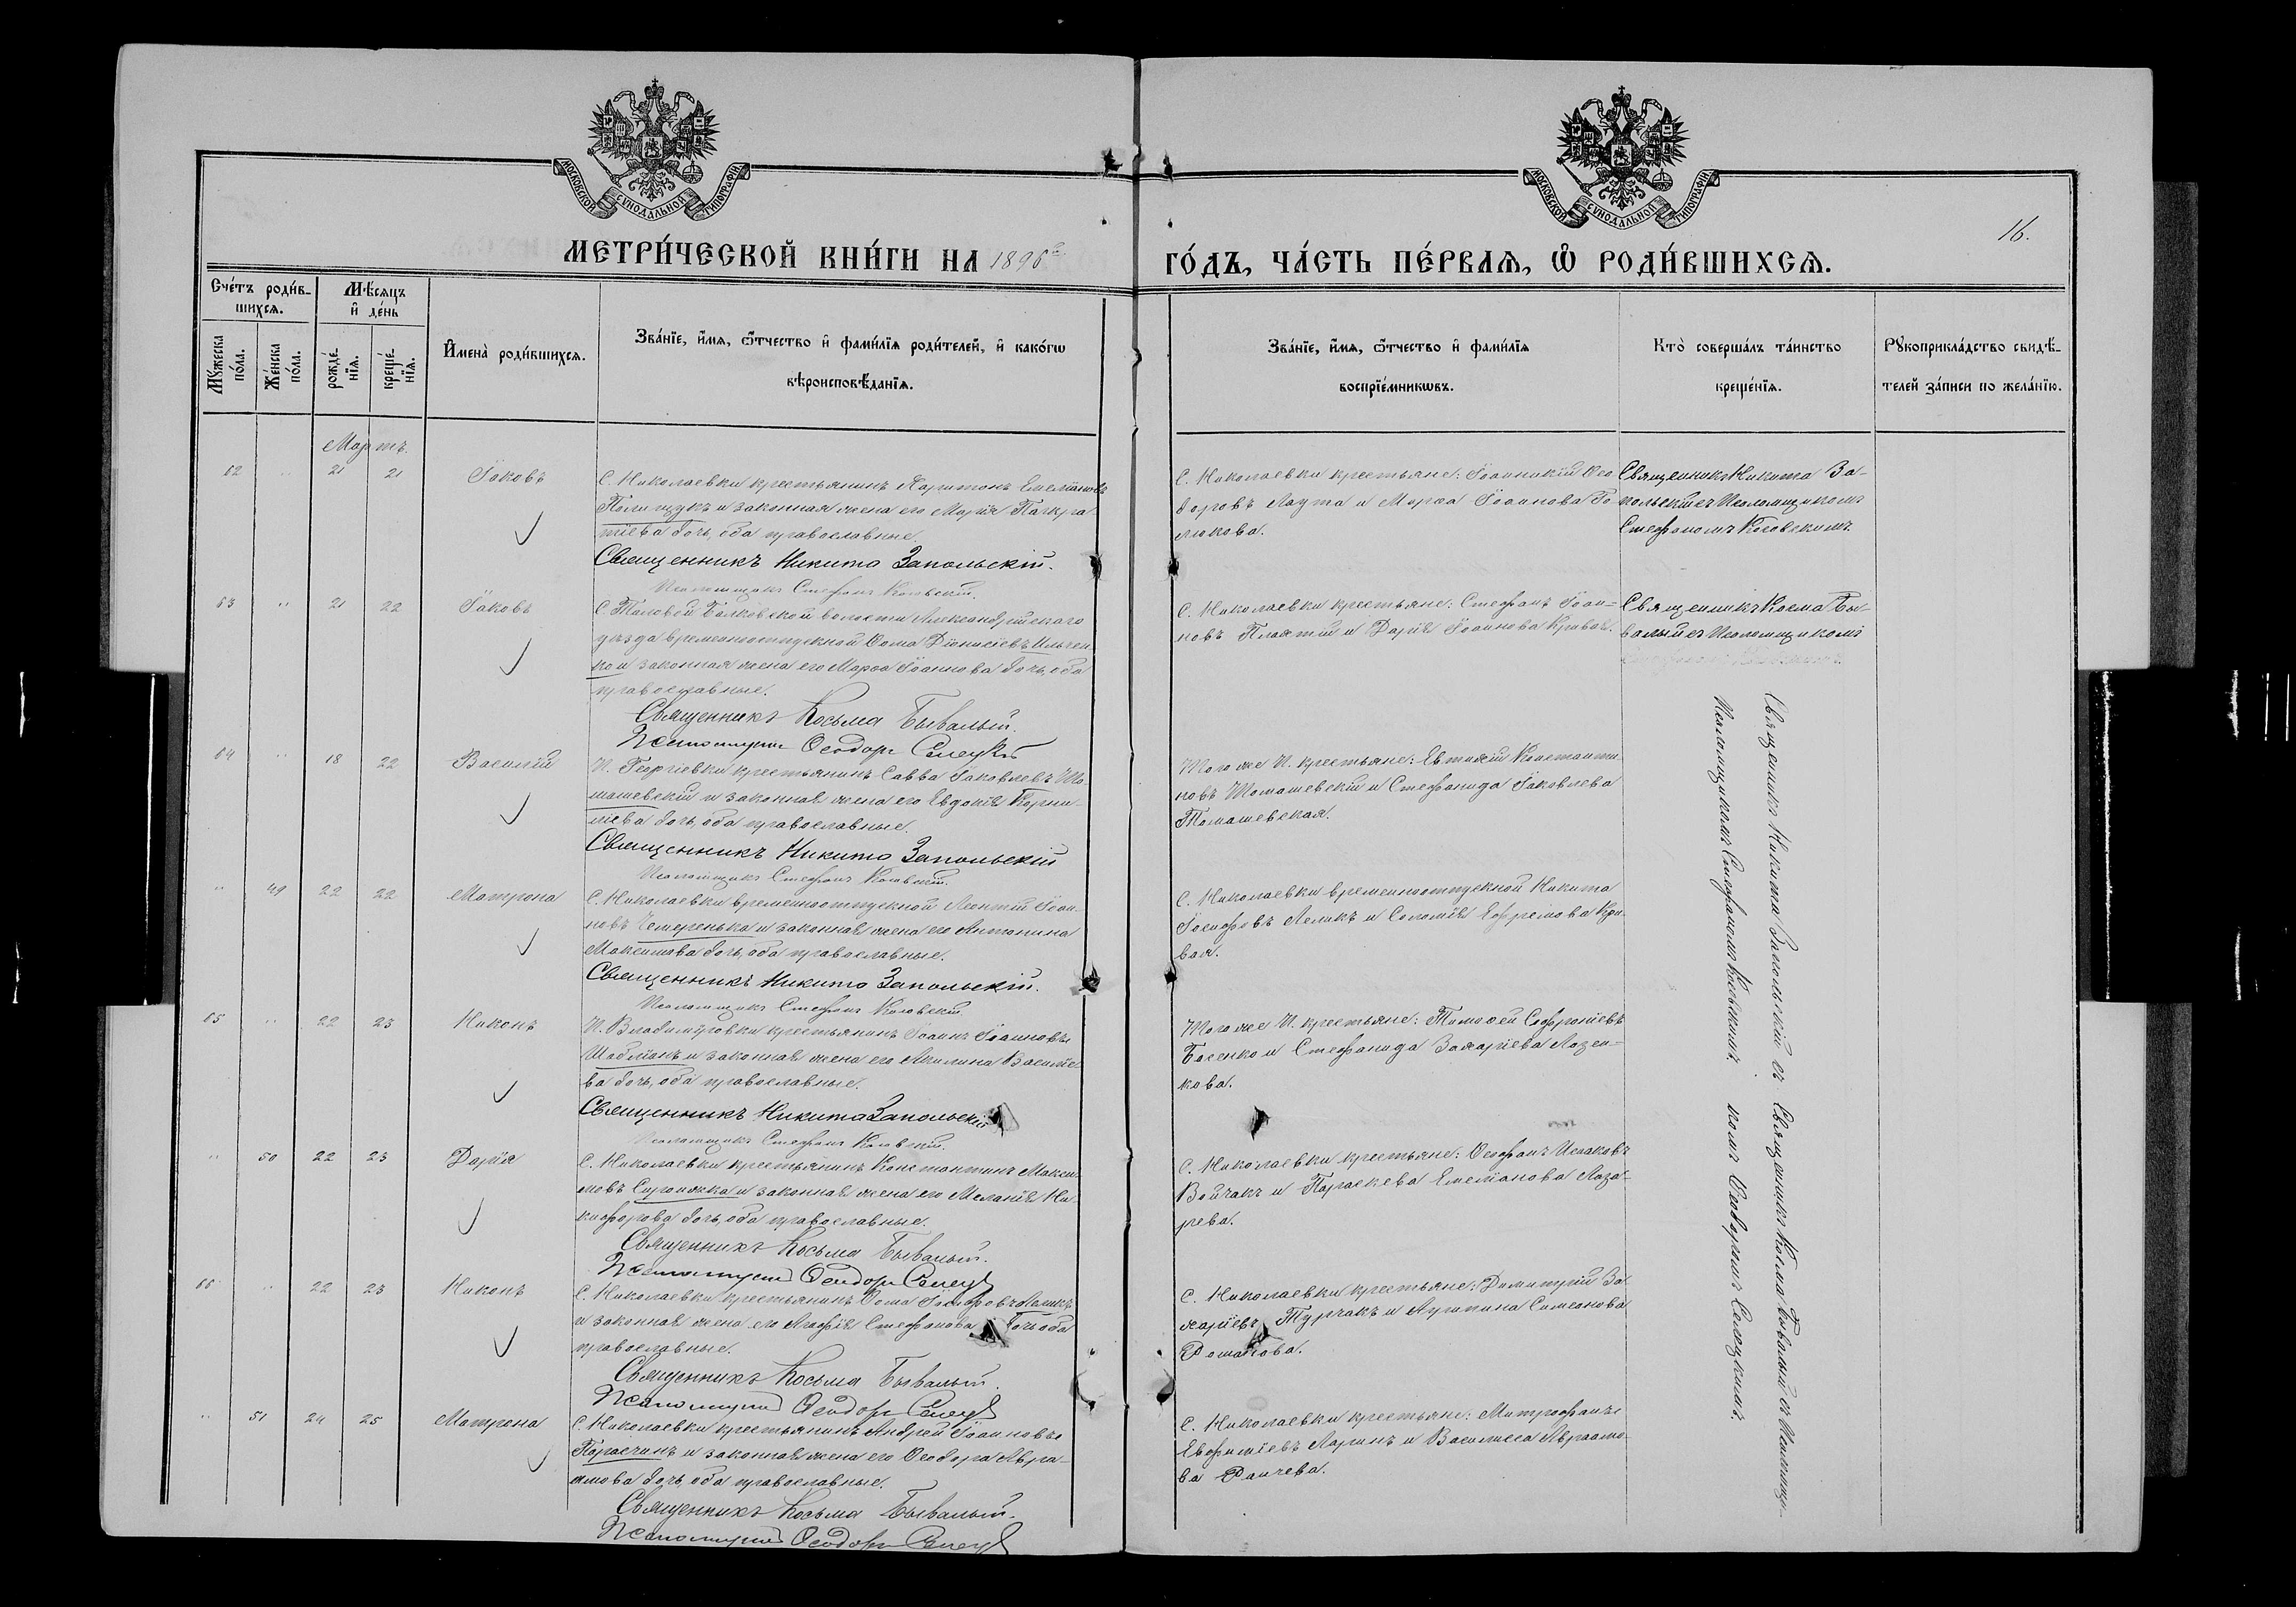 МОСКОВСКОЙ СУНОДАЛЬНОЙ ТИПОГРАФІИ
МОСКОВСКОЙ СУНОДАЛЬНОЙ ТИПОГРАФІИ
16.
МЕТРИ́ЧЕСКОЙ КНИ́ГИ НА 1896
ГО́ДЪ, ЧА́СТЬ ПЕ́РВАѦ, Ѡ РОДИ́ВШИХСѦ.
Сче́тъ роди́в-
шихсѧ.
Мѣ́сѧцъ
и҆ де́нь
Мꙋжеска
по́ла.
Же́нска
по́ла.
рожде́-
нїѧ.
креще́-
нїѧ.
И҆мена̀ роди́вшихсѧ.
Зва́нїе, и҆́мѧ, ѻ҆́тчество и҆ фами́лїѧ роди́телей, и҆ како́гѡ
вѣроисповѣ́данїѧ.
Зва́нїе, и҆́мѧ, ѻ҆́тчество и҆ фами́лїѧ
воспрїе́мникѡвъ.
Кто̀ соверша́лъ та́инство
креще́нїѧ.
Рꙋкоприкла́дство свидѣ́-
телей за́писи по жела́нїю.
Мартъ.
62 " 21 21 Іаковъ
С. Николаевки крестьянинъ Харитонъ Емеліановъ
Полищукъ и законная жена его Марія Панкра
тіева дочь, оба православные.
Священникъ Никита Запольскій.
Псаломщикъ Стефанъ Косовскій.
С. Николаевки крестьяне: Іоанникій Ѳео
доровъ Лаута и Марѳа Іоаннова Го
люкова.
Священникъ Никита За-
польскій съ Псаломщикомъ
Стефаномъ Косовскимъ.
63 " 21 22 Іаковъ
С. Тасовой Балковской волости Александрійскаго
уѣзда временноотпускной Ѳома Діонисіевъ Ильчен
ко и законная жена его Марѳа Іоаннова дочь, оба
православные.
Священникъ Косьма Бывалый.
Псаломщикъ Ѳеодоръ Селецкій
С. Николаевки крестьяне: Стефанъ Іоан-
новъ Плахтій и Дарія Іоаннова Кривач.
Священникъ Косма Бы-
валый съ Псаломщикомъ
64 " 18 22 Василій
П. Георгіевки крестьянинъ Савва Іаковлевъ То
машевскій и законная жена его Евдокія Корни
ліева дочь, оба православные.
Священникъ Никита Запольскій
Псаломщикъ Стефанъ Косовскій.
Того же П. крестьяне: Евтихій Константи
новъ Томашевскій и Стефанида Іаковлева
Томашевская.
Священникъ Никита Запольскій съ
Псаломщикомъ Стефаномъ Косовскимъ.
" 49 22 22 Матрона
С. Николаевки временноотпускной Леонтій Іоан-
новъ Чемеренько и законная жена его Антонина
Максимова дочь, оба православные.
Священникъ Никита Запольскій.
Псаломщикъ Стефанъ Косовскій.
С. Николаевки временноотпускной Никита
Іосифовъ Леликъ и Соломія Ефремова Кри
вая.
65 " 22 23 Никонъ
П. Владиміровки крестьянинъ Іоаннъ Іоанновъ
Шабліанъ и законная жена его Акилина Василіе
ва дочь, оба православные.
Священникъ Никита Запольскій
Псаломщикъ Стефанъ Косовскій.
Того же П. крестьяне: Тимоѳей Софроніевъ
Босенко и Стефанида Захаріева Лозен-
кова.
" 50 22 23 Дарія
С. Николаевки крестьянинъ Константинъ Макси
мовъ Сиромжка и законная жена его Меланія Ни
кифорова дочь, оба православные.
Священникъ Косьма Бывалый.
Псаломщикъ Ѳеодоръ Селец
С. Николаевки крестьяне: Ѳеофанъ Исааковъ
Войчакъ и Параскева Емеліанова Лаза-
рева.
Священникъ Косма Бывалый съ Псаломщи-
комъ Ѳеодоромъ Селецкимъ.
66 " 22 23 Никонъ
С. Николаевки крестьянинъ Ѳома Іосифовъ Леликъ
и законная жена его Агафія Стефанова дочь оба
православные.
Священникъ Косьма Бывалый.
Псаломщикъ Ѳеодоръ Селец
С. Николаевки крестьяне: Димитрій За
харіевъ Турчакъ и Агрипина Симеонова
Романова.
" 51 24 25 Матрона
С. Николаевки крестьянинъ Андрей Іоанновъ
Парасчинъ и законная жена его Ѳеодора Авра-
амова дочь, оба православные.
Священникъ Косьма Бывалый.
Псаломщикъ Ѳеодоръ Селец
С. Николаевки крестьяне: Митрофанъ
Евфиміевъ Ларинъ и Василисса Авраамо
ва Раичева.